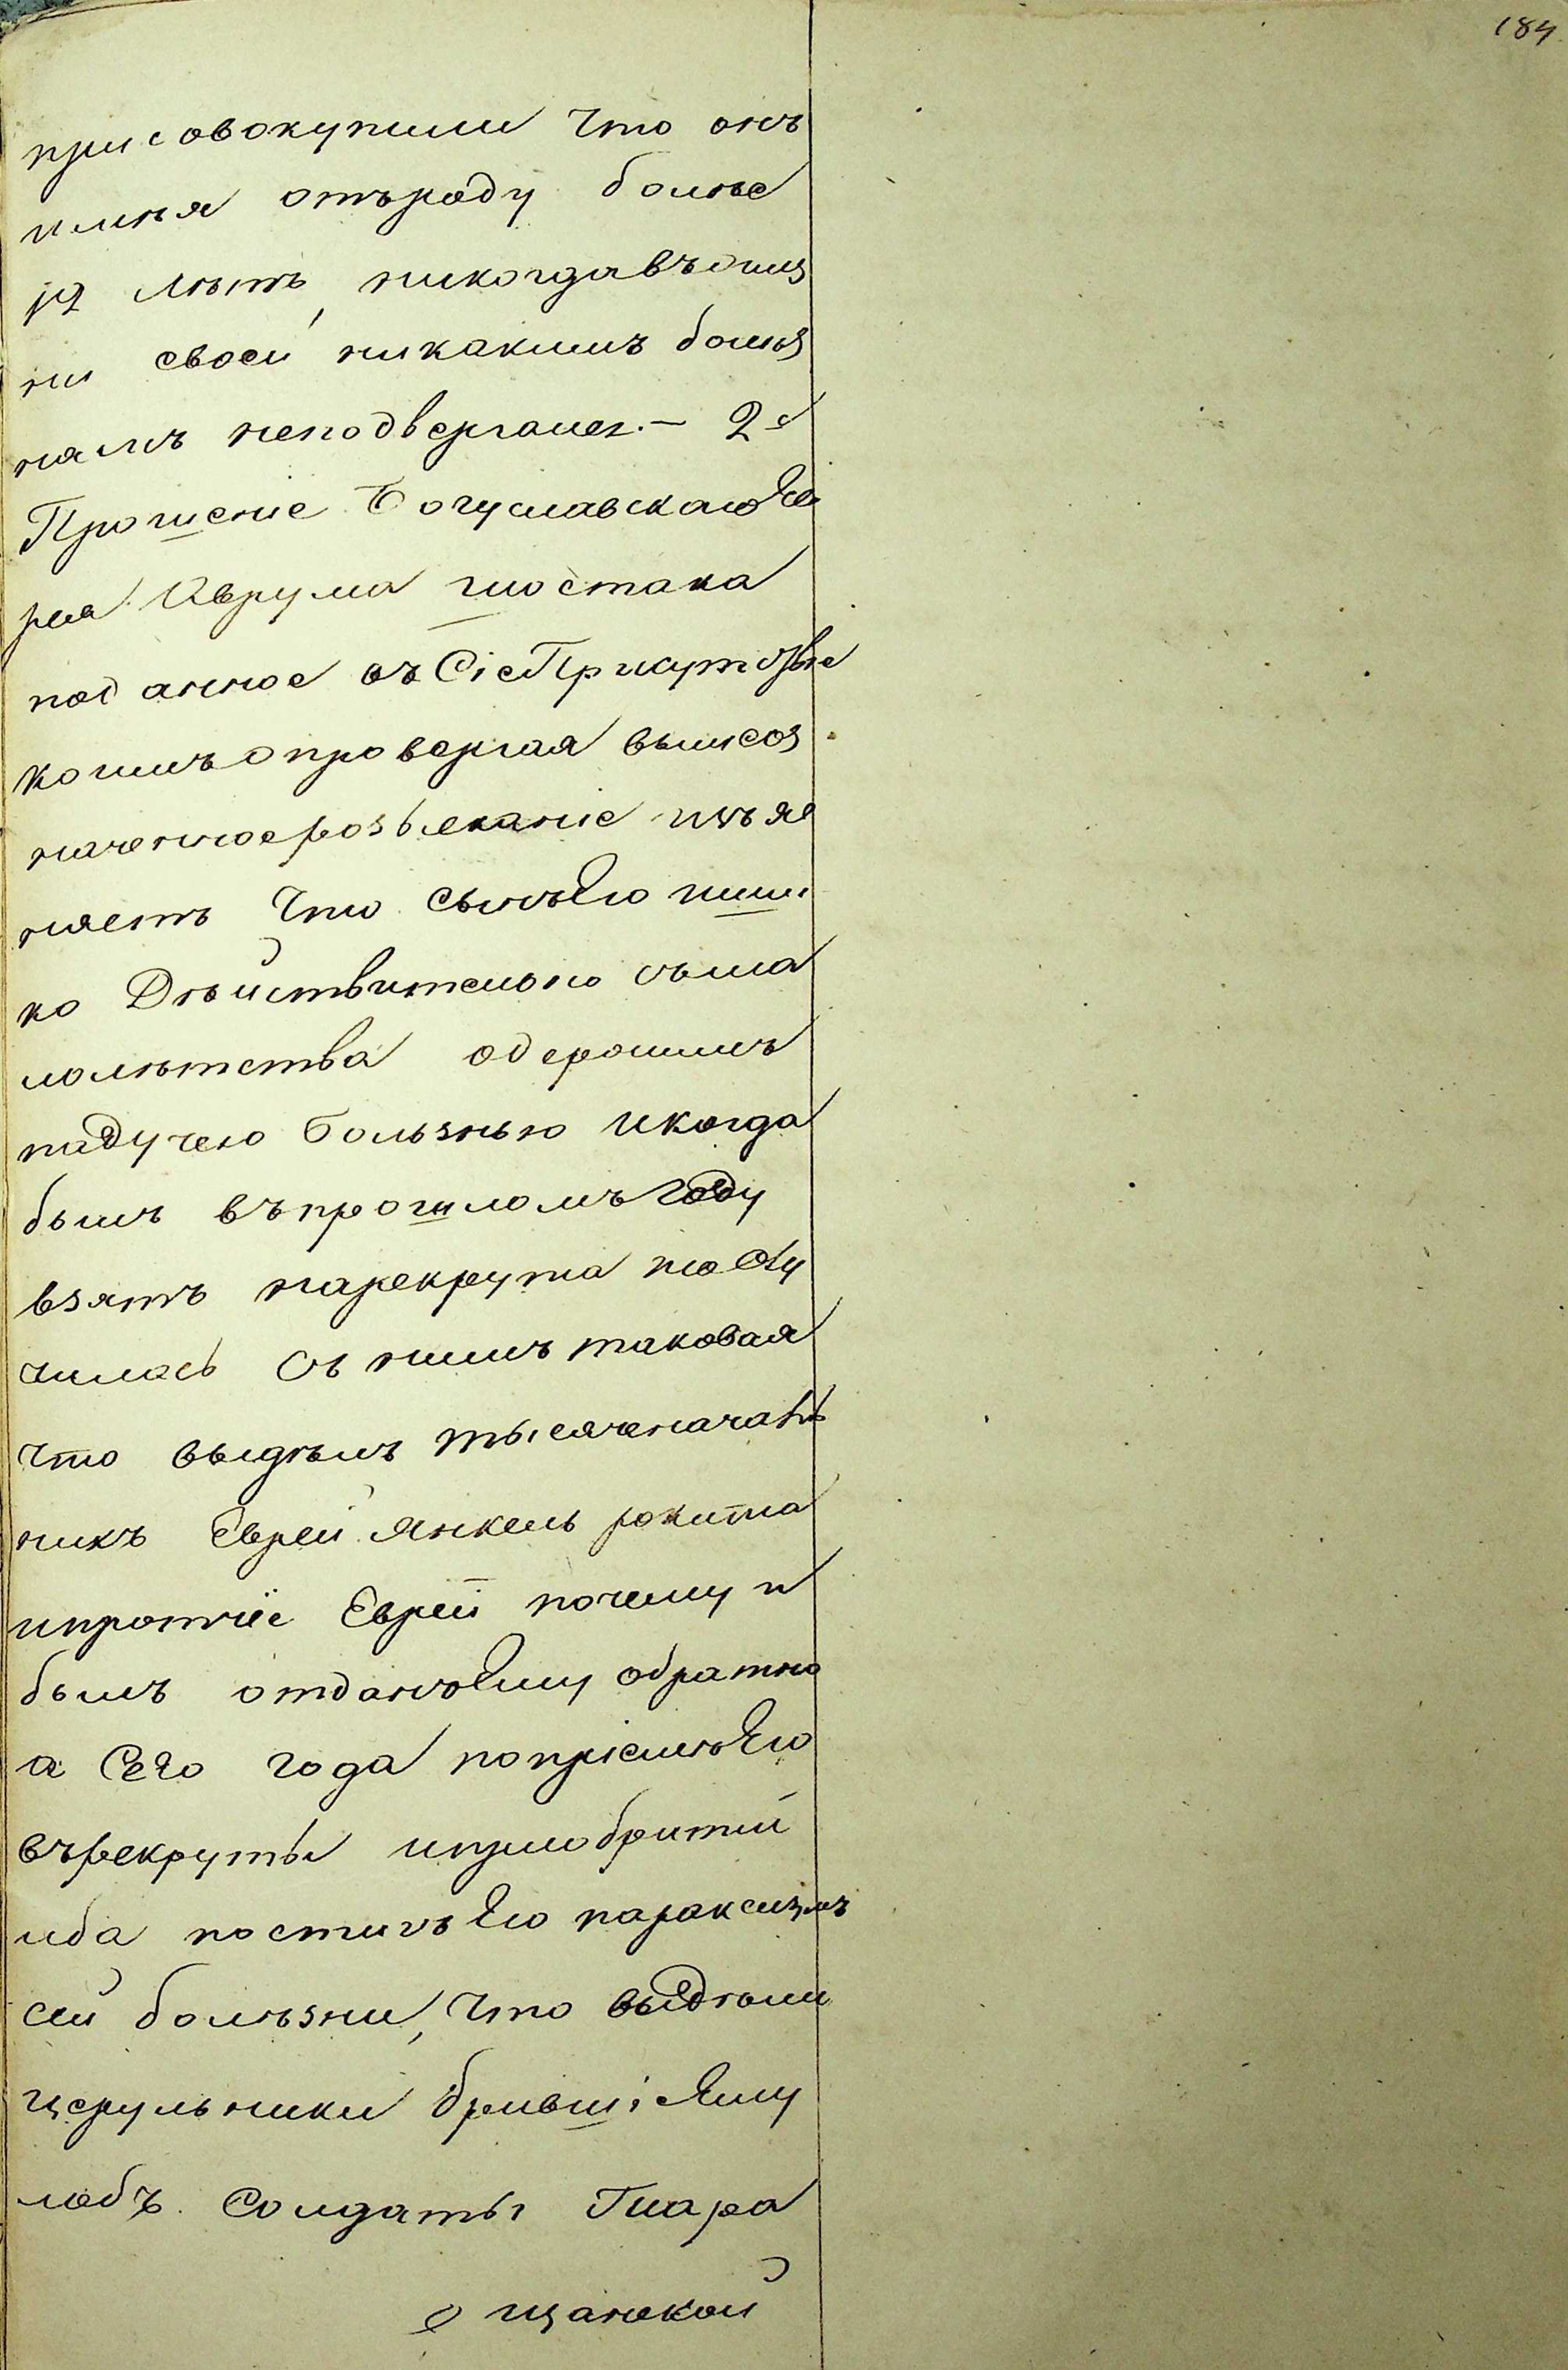 184
присовокупили что онъ
имѣя отъроду болѣе
12 лѣтъ, никогдавъжиз
ни своей никакимъ болѣз
нямъ неподвергался. — 2е
Прошеніе Богуславскаго Ев
рея Аврума шостака
поданное въ Сіе Присутствіе
коимъ опровергая вышеоз
наченноерозысканіе изъяс
няетъ что сынъ Его ицш
ко Дѣйствительно съма
лолѣтства одержимъ
падучею болѣзнью икогда
былъ въпрошломъ году
взятъ нарекрута то слу
чилась Съ нимъ таковая
что видѣлъ тысяченачаль
никъ Еврей Янкель рокитна
ипротчіе Евреи почему и
былъ отданъ Ему обратно
а Сего года попріемѣ Его
върекруты иприобритіи
лба постигъ Его параксизмъ
сей болѣзни, что видѣли
церульники брившіе Ему
лобъ Солдаты Тиара
щанской